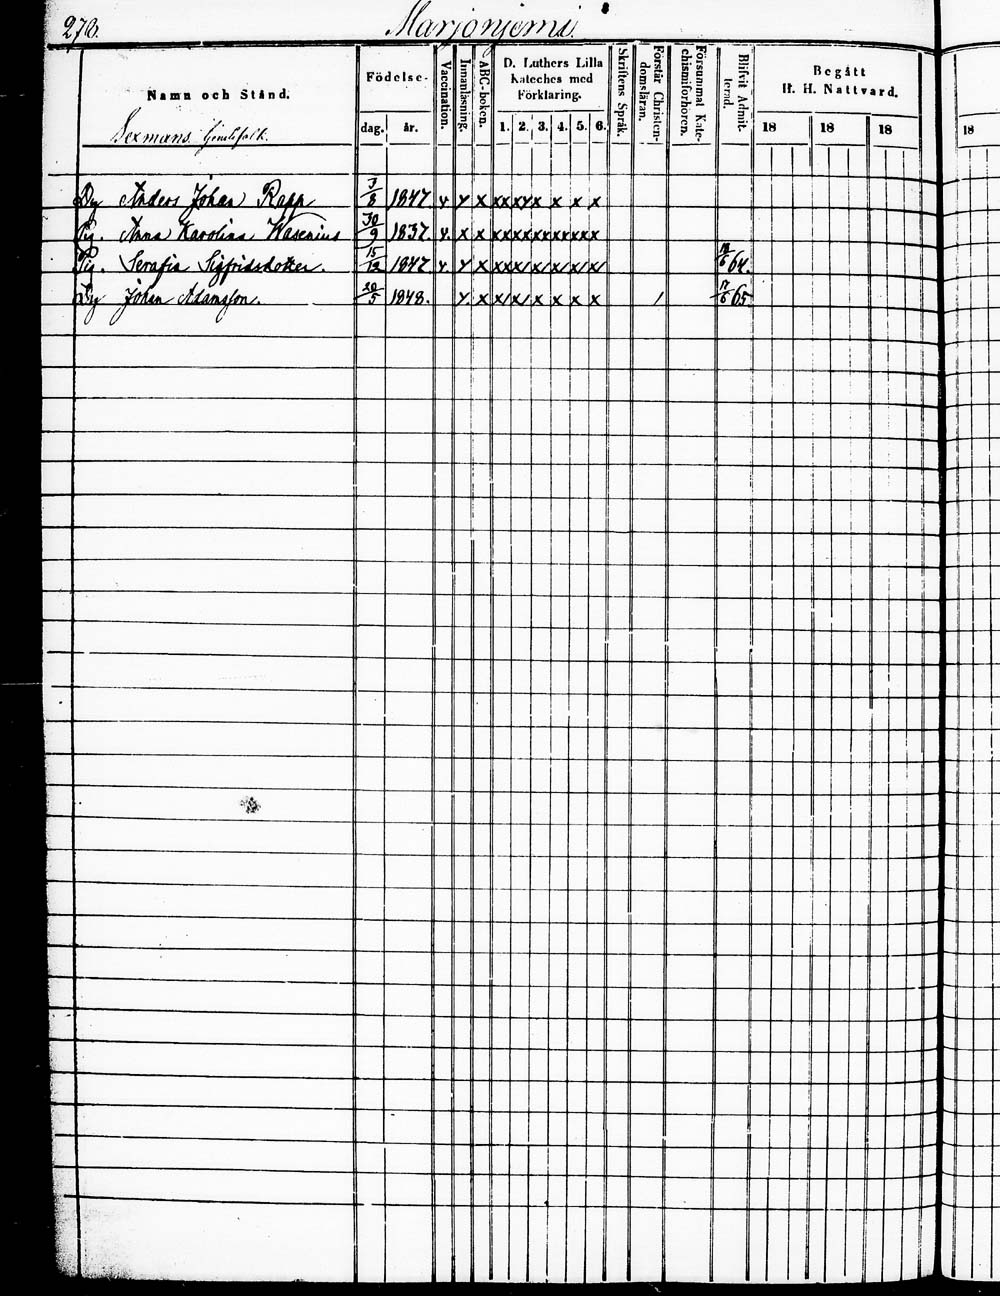 278. Marjoniemi.
Namn och Stånd.
Sexmans
Födelse-
dag. år.
Vaccination.
Innanläsning.
ABC-boken.
D. Luthers Lilla
Kateches med
Förklaring.
1. 2. 3. 4. 5. 6.
Skriftens Språk.
Förstår Christen-
domsläran.
Försummat Kate-
chismiförhören.
Blifvit Admit-
terad.
Begått
H. H. Nattvard.
18 18 18 18
Dg Anders Johan Rapp 3/8 1847 v y x xx xy x x x x
Pig. Anna Karolina Wasenius 30/9 1837. v. x x xx xx xx xx xx x
Pig. Serafia Sigfridsdotter. 15/12 1847 v. y x xx x/ x/ x/ x/ x/ 64.
Dg Johan Adamsson. 20/5 1848. y. x x/ x/ x x x x / 17/6 65